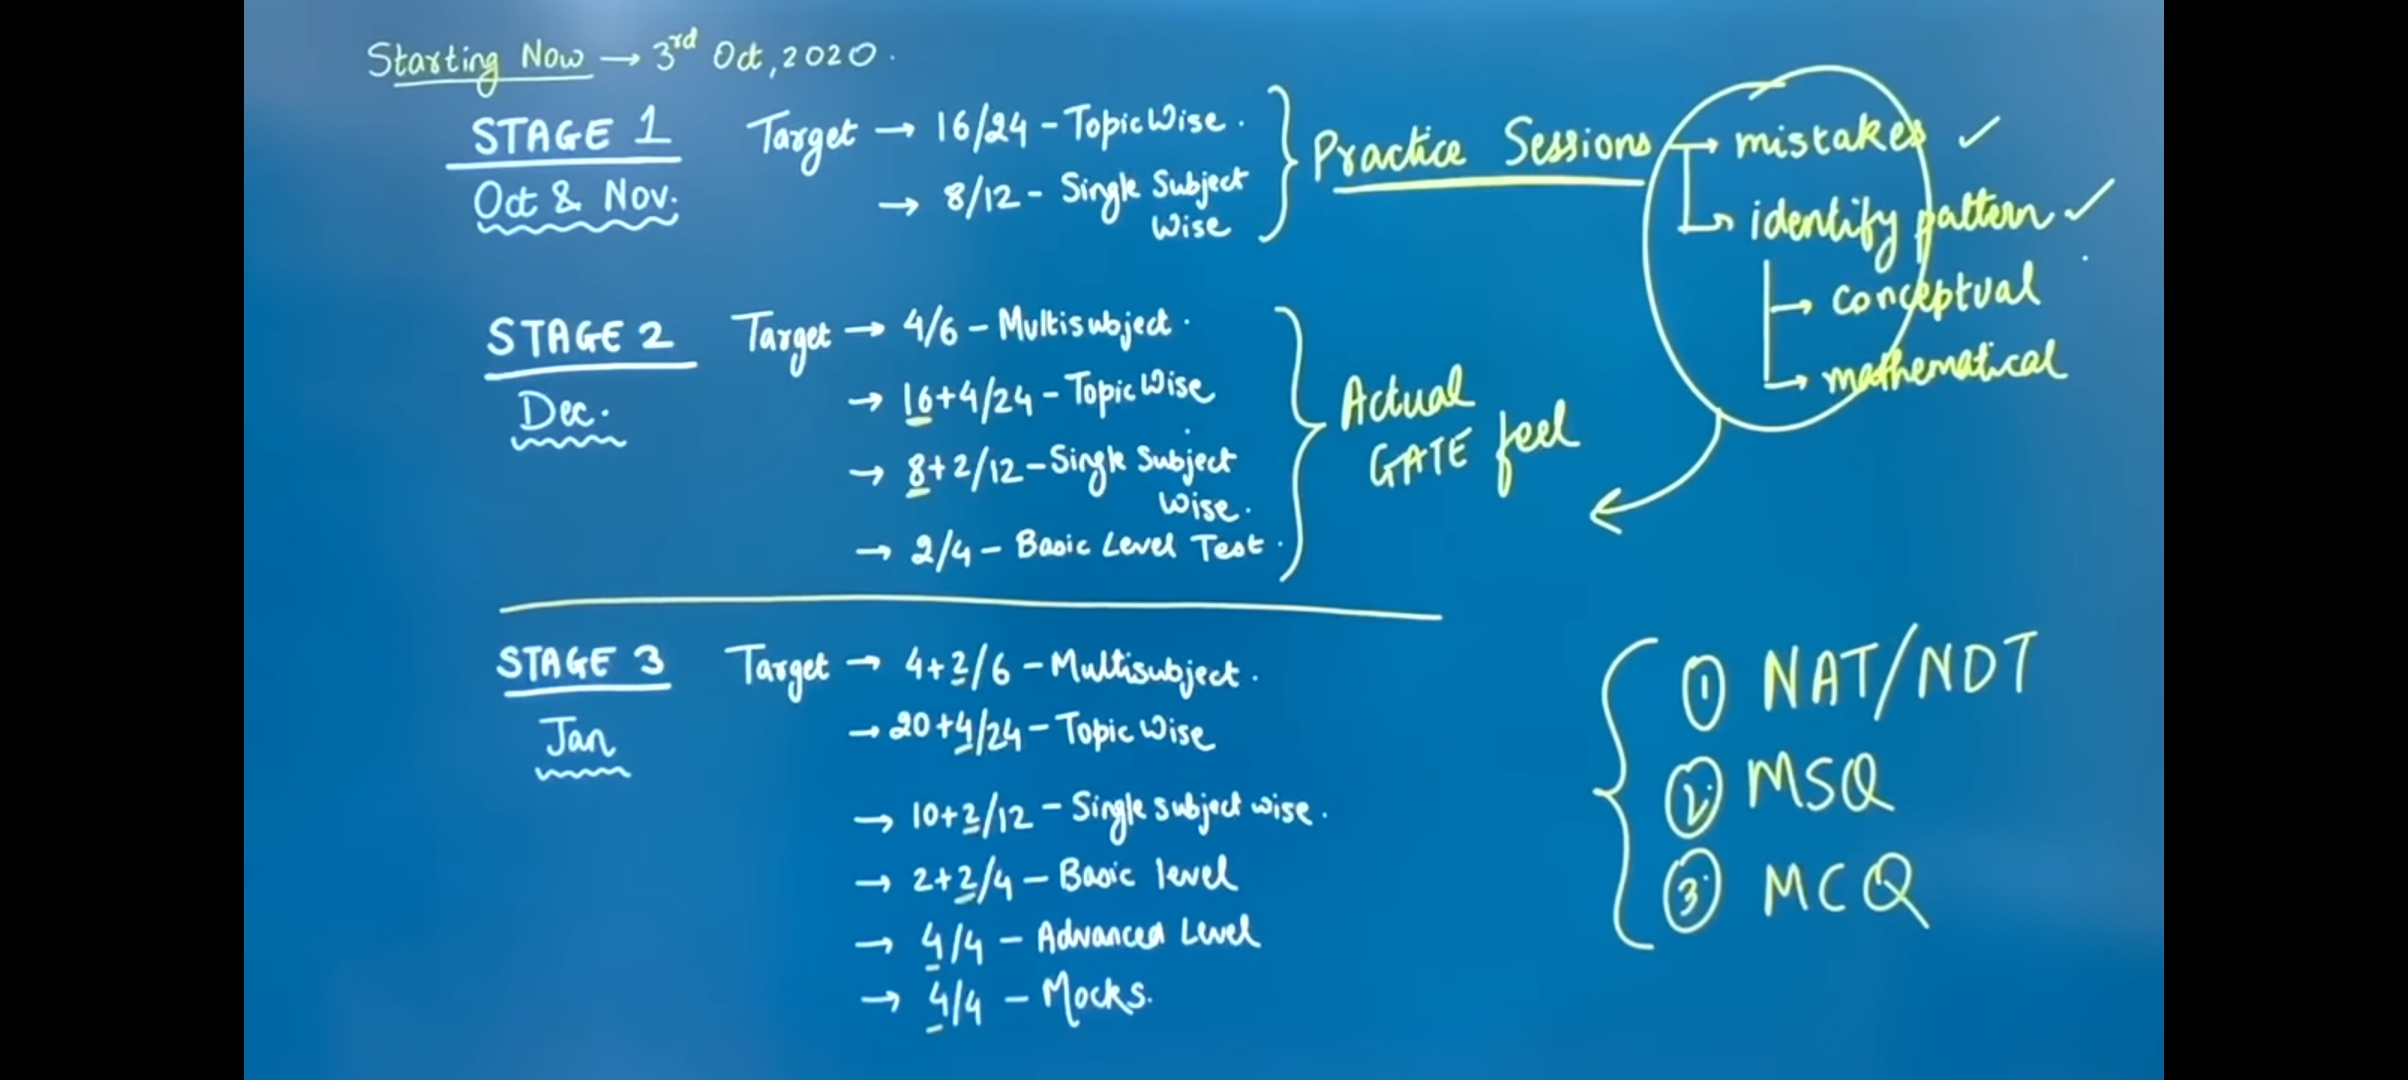 Starting Now → 3rd Oct, 2020.
STAGE 1
Oct & Nov.
Target → 16/24 - Topic Wise.
→ 8/12 - Single Subject
Wise
Practice Sessions
→ mistakes ✓
→ identify pattern ✓
→ conceptual
→ mathematical
STAGE 2
Dec.
Target → 4/6 - Multisubject.
→ 16+4/24 - Topic Wise
→ 8+2/12 - Single Subject
Wise.
→ 2/4 - Basic Level Test.
Actual
GATE feel
STAGE 3
Jan
Target → 4+2/6 - Multisubject.
→ 20+4/24 - Topic Wise
→ 10+2/12 - Single subject wise.
→ 2+2/4 - Basic level
→ 4/4 - Advanced Level
→ 4/4 - Mocks.
① NAT/NDT
② MSQ
③ MCQ